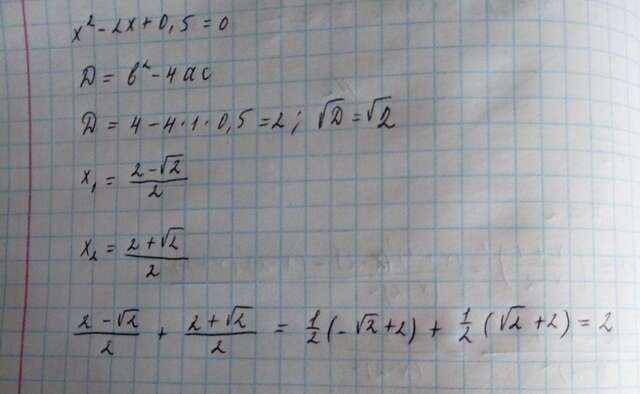 x² - 2x + 0,5 = 0
D = b² - 4ac
D = 4 - 4·1·0,5 = 2; √D = √2
x₁ = (2-√2)/2
x₂ = (2+√2)/2
(2-√2)/2 + (2+√2)/2 = 1/2(-√2+2) + 1/2(√2+2) = 2